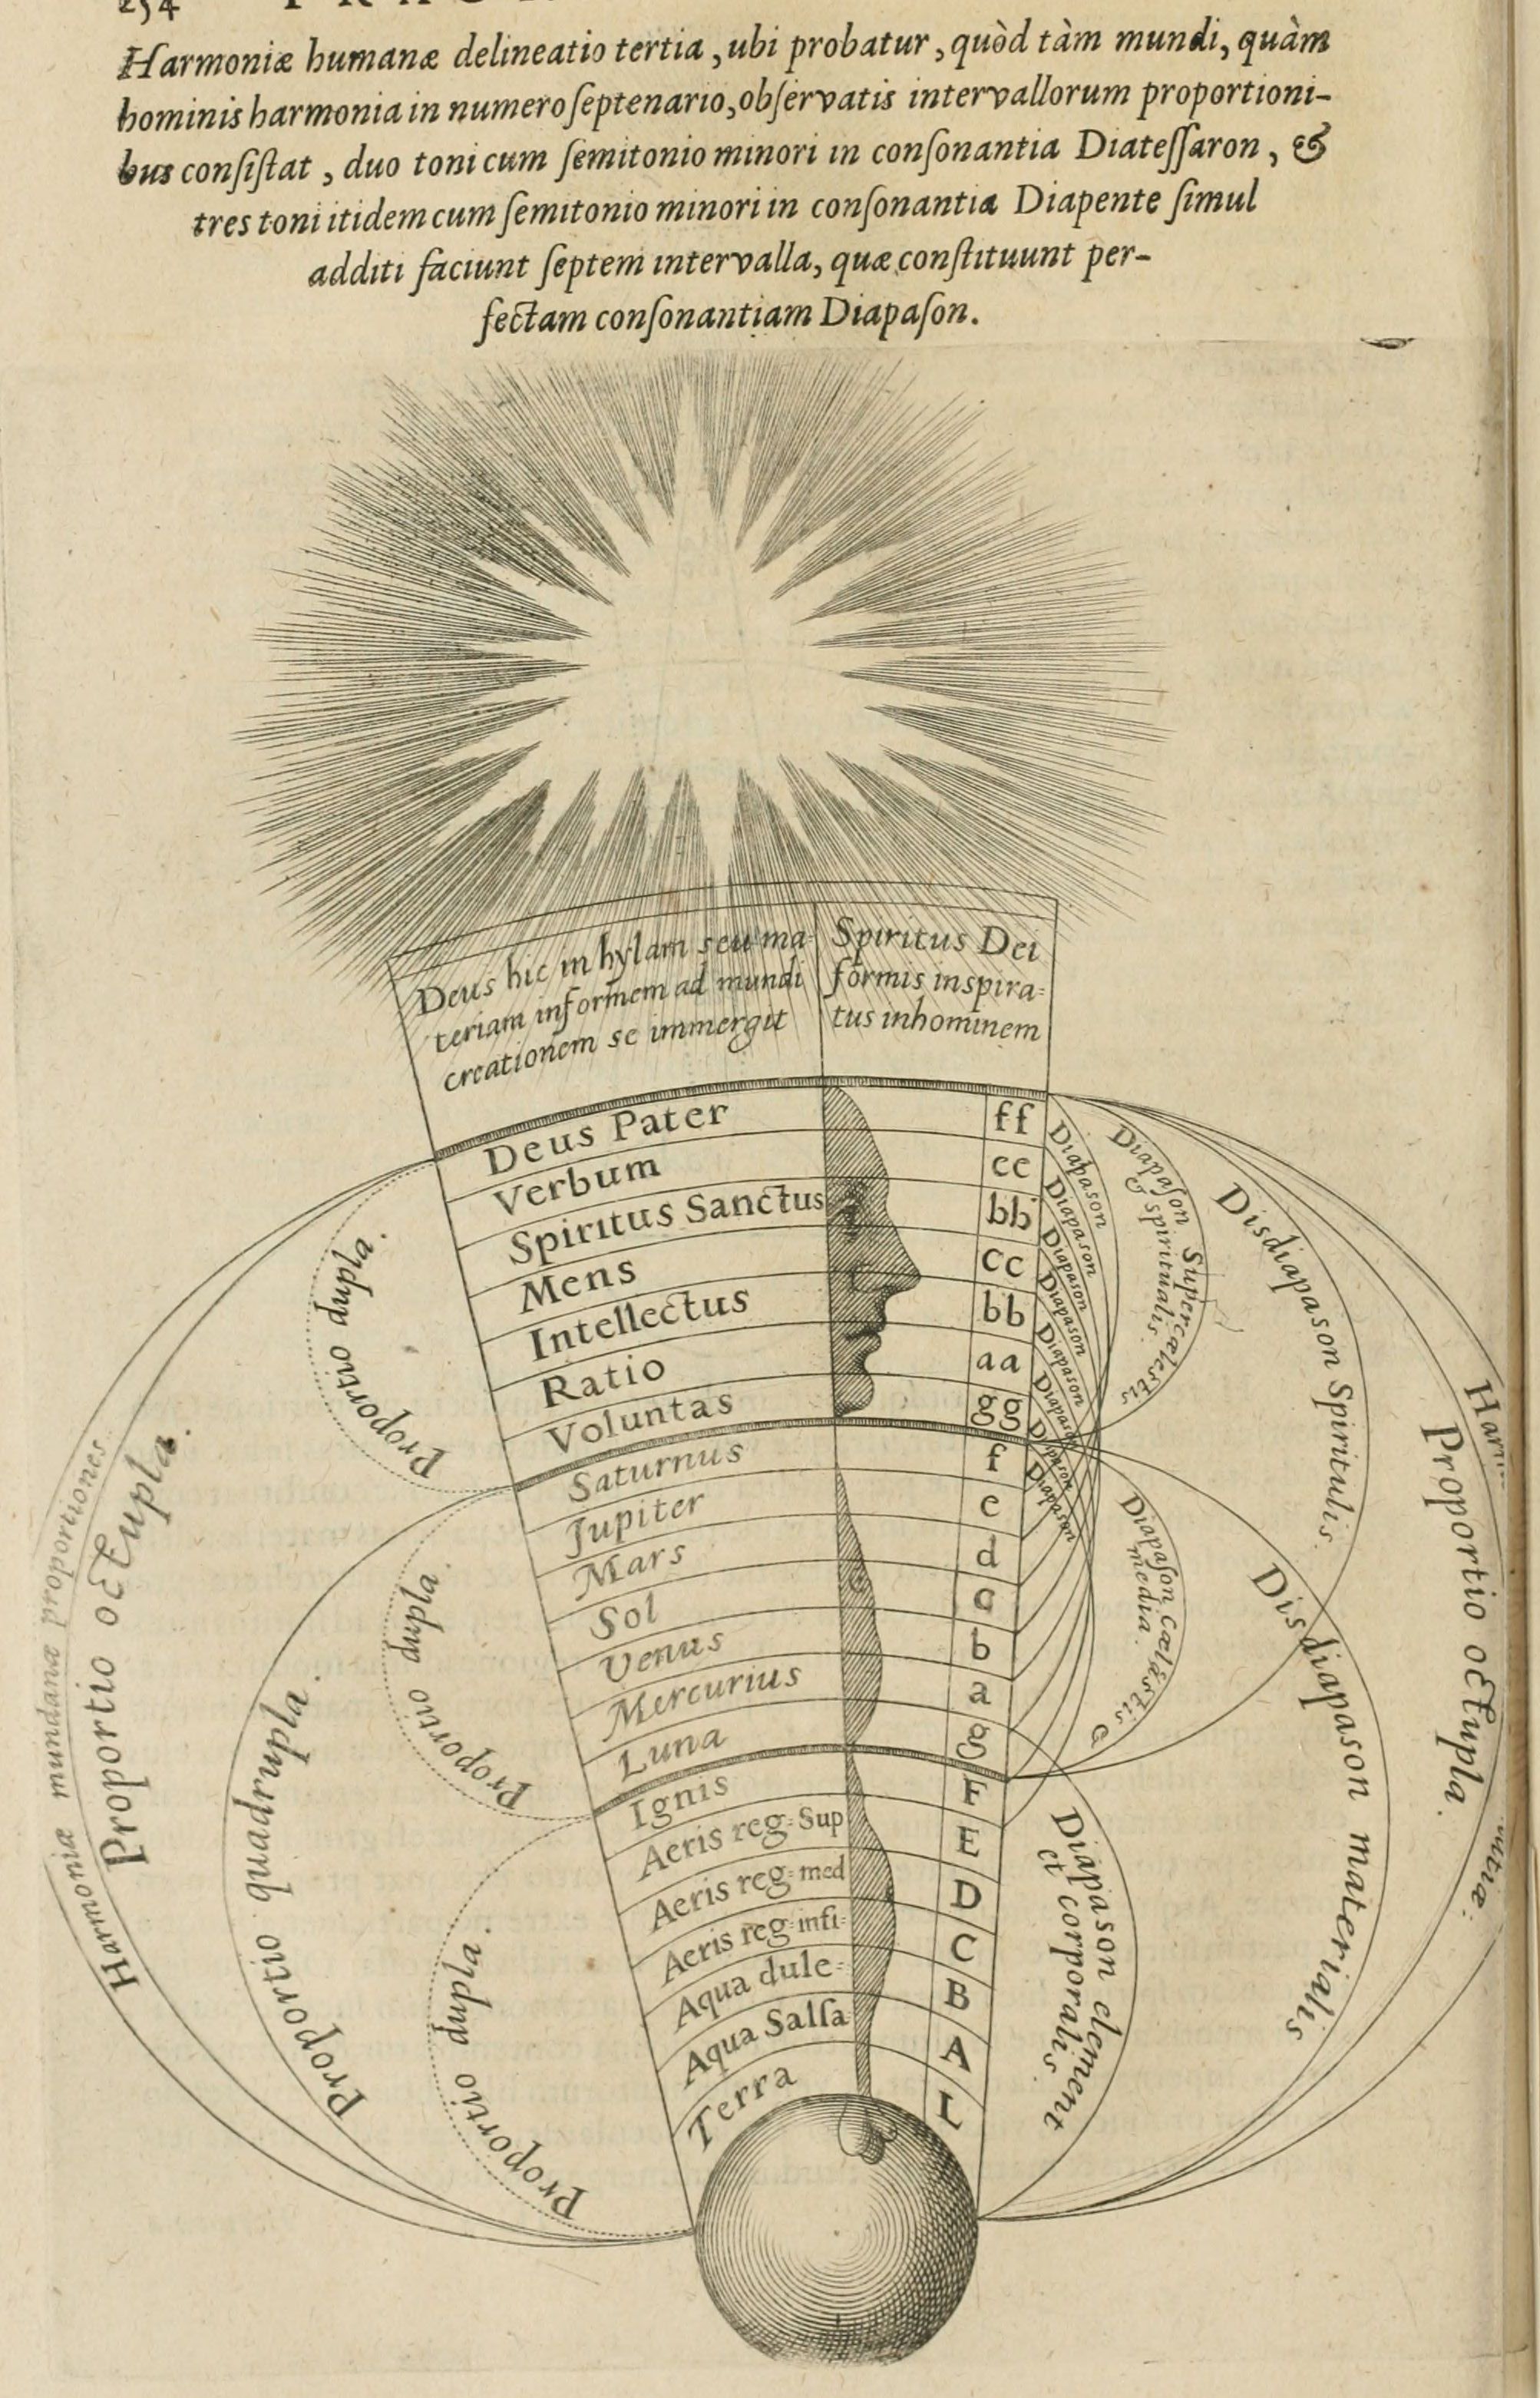 254
Harmoniæ humanæ delineatio tertia, ubi probatur, quòd tàm mundi, quàm
hominis harmonia in numero ſeptenario, obſervatis intervallorum proportioni-
bus conſiſtat, duo toni cum ſemitonio minori in conſonantia Diateſſaron, &
tres toni itidem cum ſemitonio minori in conſonantia Diapente ſimul
additi faciunt ſeptem intervalla, quæ conſtituunt per-
fectam conſonantiam Diapaſon.
Deus hic in hylam seu ma=
teriam informem ad mundi
creationem se immergit
Spiritus Dei
formis inspira=
tus in hominem
Deus Pater ff
Verbum ee
Spiritus Sanctus bb
Mens cc
Intellectus bb
Ratio aa
Voluntas gg
Saturnus f
Jupiter e
Mars d
Sol c
Venus b
Mercurius a
Luna g
Ignis F
Aeris reg=Sup E
Aeris reg=med D
Aeris reg=infi= C
Aqua dule= B
Aqua Salſa= A
Terra
Proportio dupla.
Proportio dupla
Proportio dupla.
Proportio quadrupla.
Proportio octupla.
Harmoniæ mundanæ proportiones
Diapason
Diapason
Diapason
Diapason
Diapason
Diapason
Diapason
Diapason
Diapaſon Supercælestis
& spiritualis
Disdiapason Spiritulis.
Diapaſon cælestis &
media.
Disdiapason materialis
Diapason element
et corporalis.
Proportio octupla.